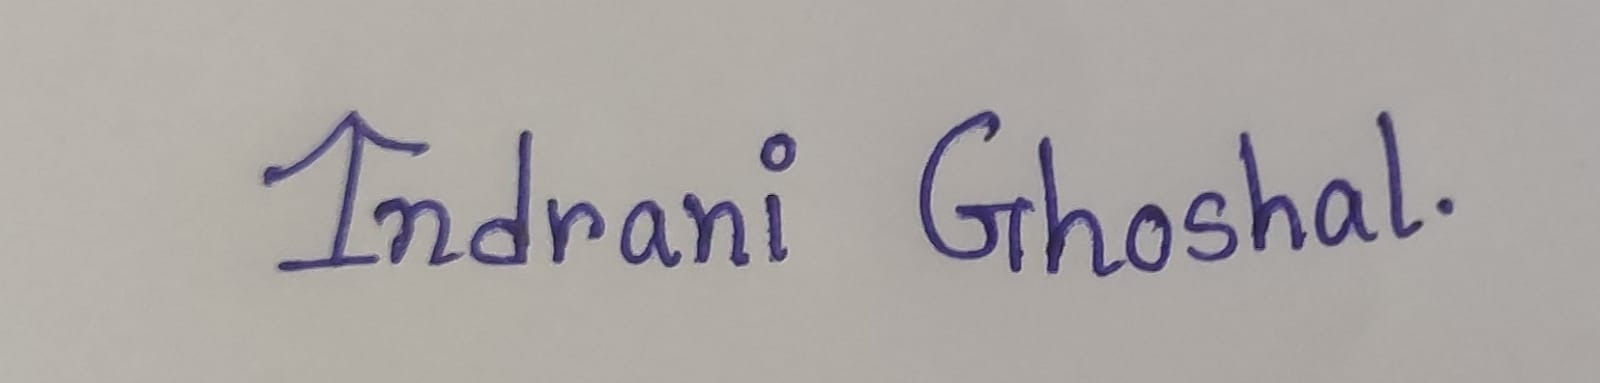 Indrani Ghoshal.